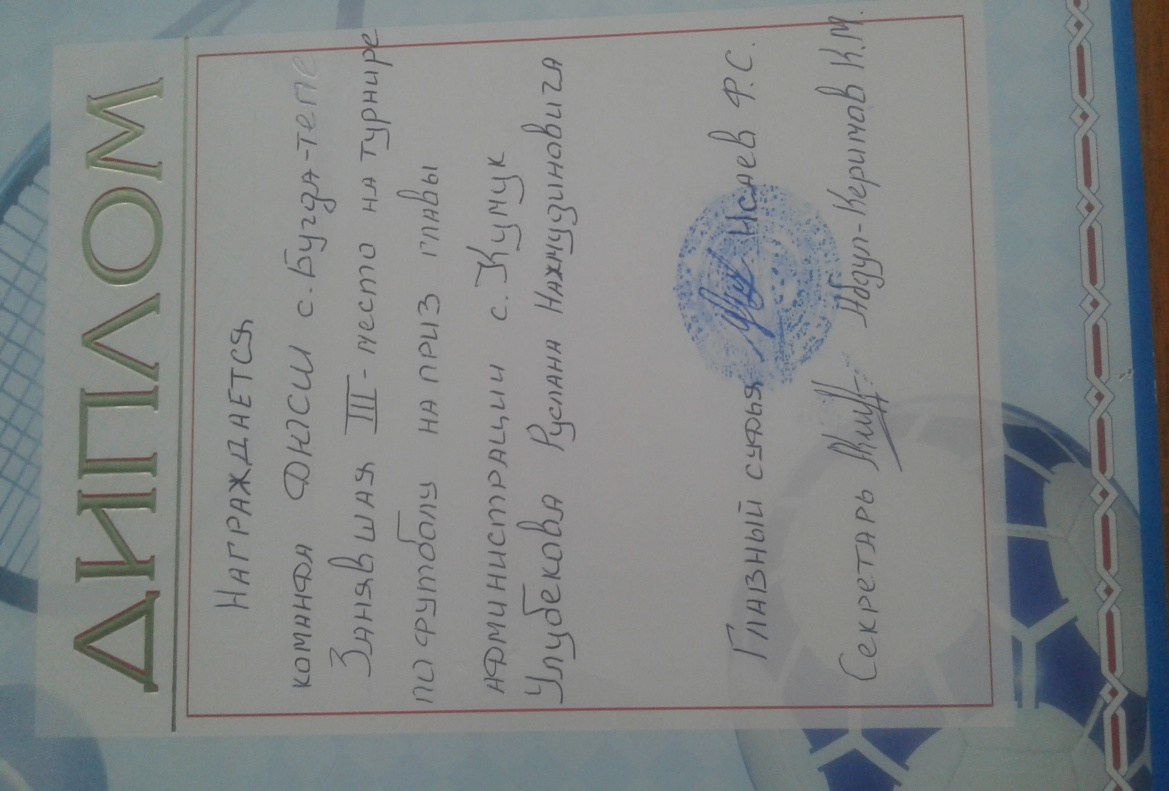 ДИПЛОМ
НАГРАЖДАЕТСЯ
КОМАНДА ДЮСШ с. БУГДА-ТЕПЕ
ЗАНЯВШАЯ III-место НА ТУРНИРЕ
ПО ФУТБОЛУ НА ПРИЗ ГЛАВЫ
АДМИНИСТРАЦИИ с. КУМУК
УЛУБЕКОВА РУСЛАНА НАЖМУДИНОВИЧА
ГЛАВНЫЙ СУДЬЯ ИСАЕВ Ф.С.
СЕКРЕТАРЬ Абдул-Керимов К.М.